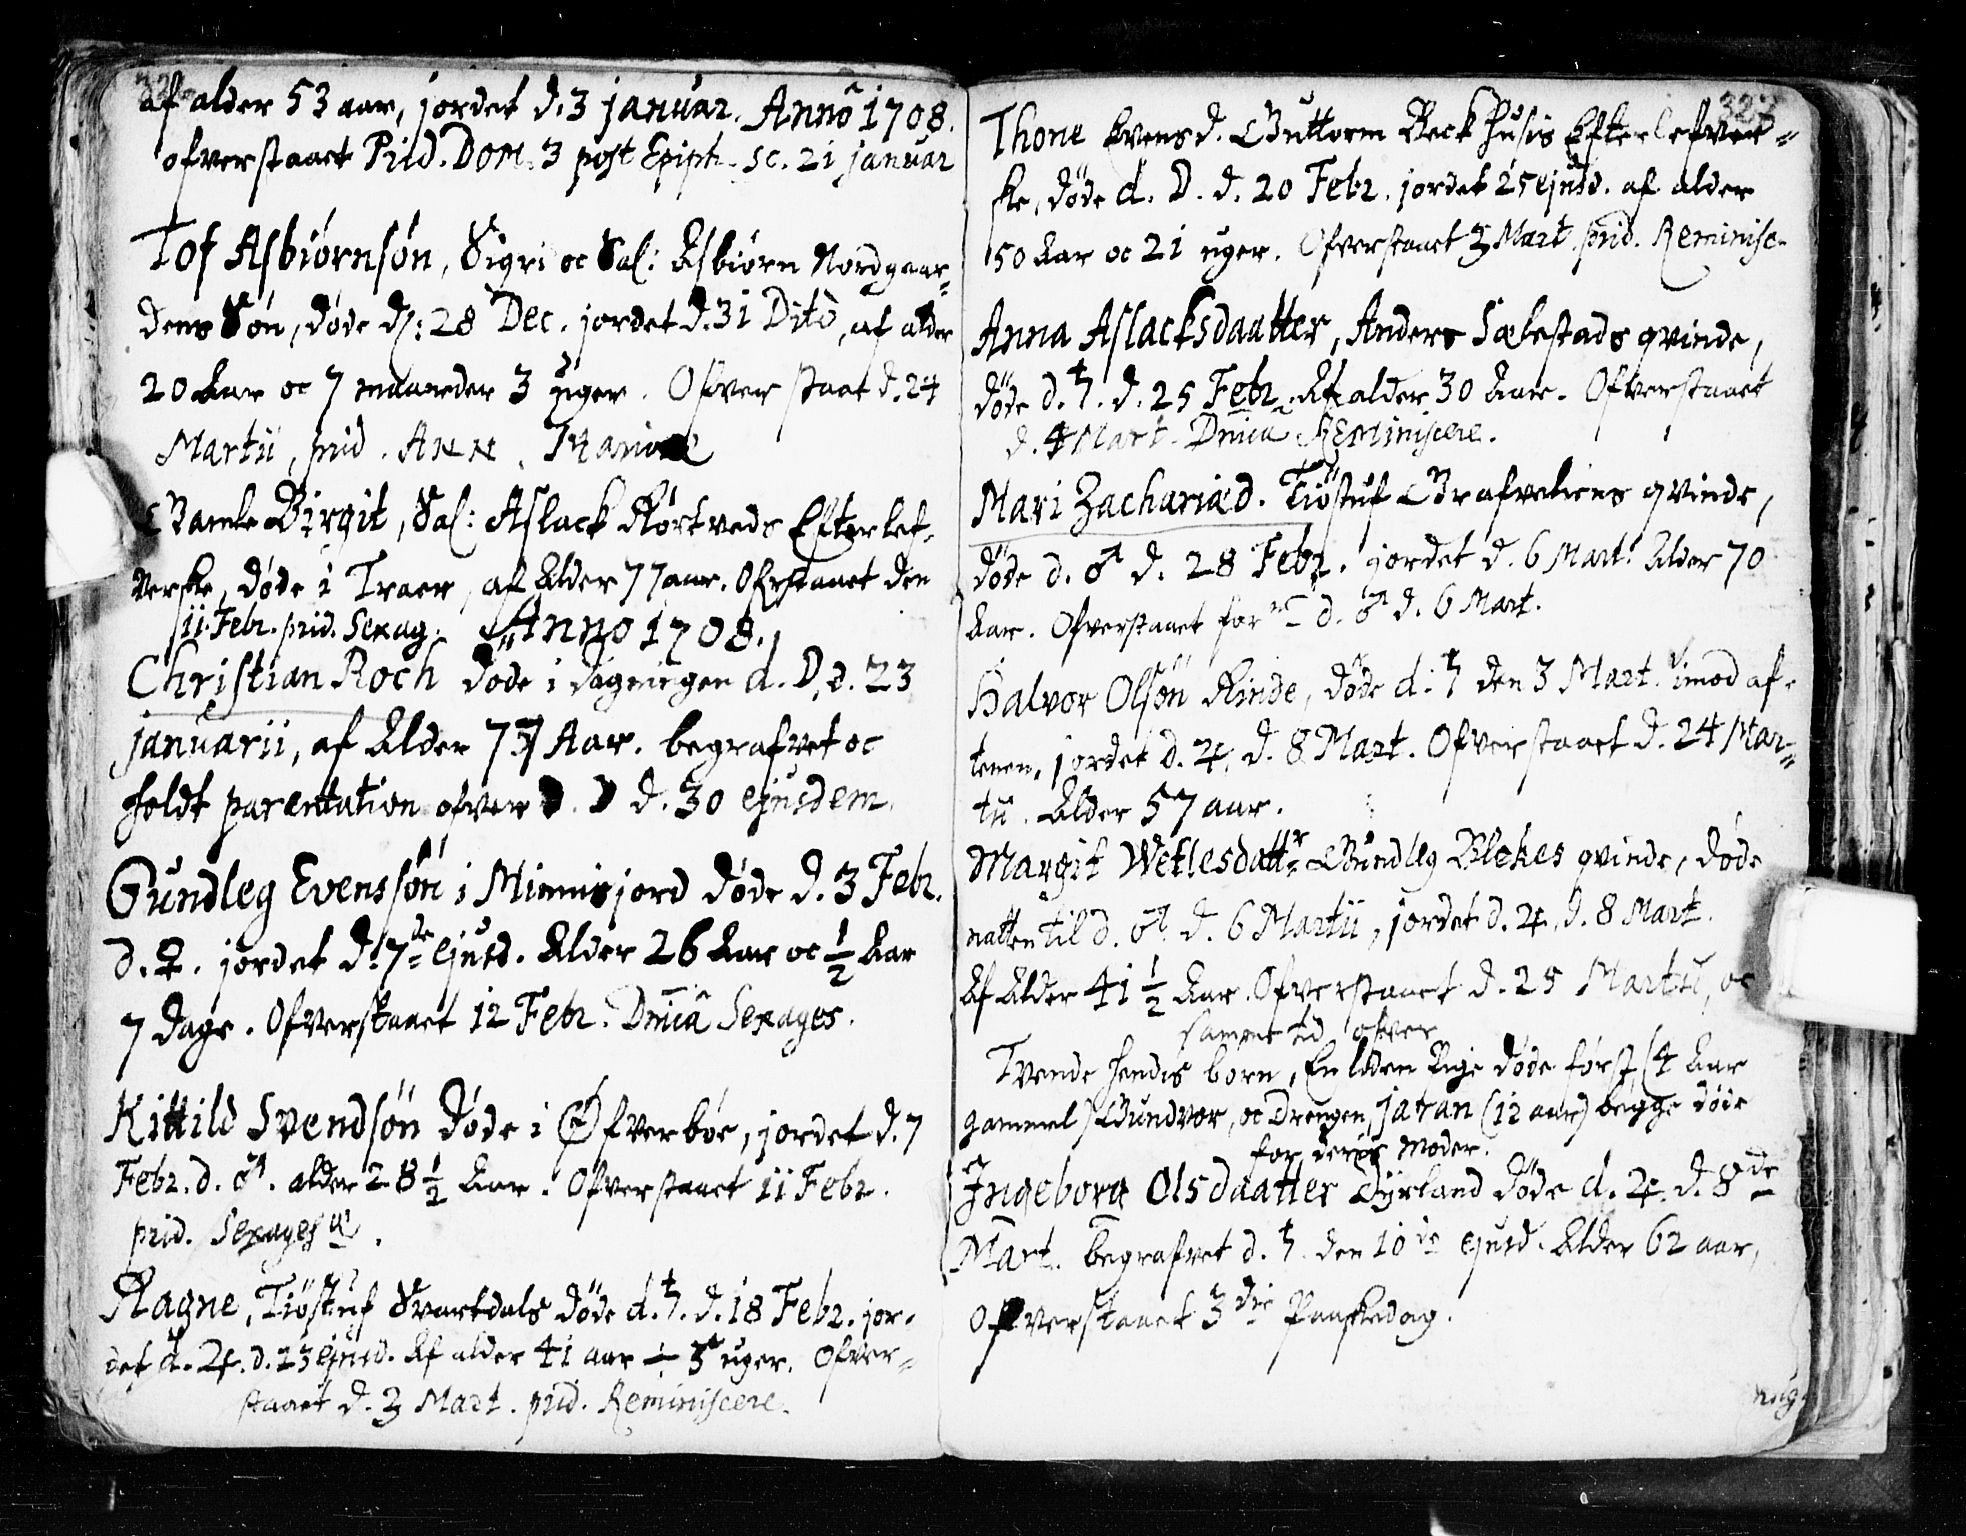 af alder 53 aar, jordet d. 3 januar. Anno 1708.
ofverstaaet Prid. Dom. 3 post Epiph. sc. 21 januar
Tof Asbiørnsøn, Sigri oc Sal: Asbiørn Nordgaar=
dens Søn, døde d: 28 Dec. jordet d. 31 Dito, af alder
20 Aar oc 7 maaneder 3 uger. Ofver staaet d. 24
Martii, prid. Ann. Mariæ
Gamle Birgit, Sal: Aslack Rørtveds Efterlef-
verske, døde i Traer, af Alder 77 aar. Ofrstaaet den
11. Febr. prid. Sexag. Anno 1708.
Christian Roch døde i dagningen d. ☽. d. 23
januarii, af Alder 77 Aar. begrafvet oc
holdt parentation ofver d. ☽ d. 30 ejusdem.
Gundleg Evenssøn i Minnisjord døde d. 3 Febr.
d. ♀. jordet d. 7de ejusd. Alder 26 Aar oc 1/2 Aar
7 dage. Ofverstaaet 12 Febr. Dnica Sexages.
Kittild Svendsøn døde i Øfverbøe, jordet d. 7
Febr. d. ♂. alder 28 1/2 Aar. Ofverstaaet 11 Febr.
prid. Sexages.
Ragne, Tiøstuf Svartdals døde d. ♄. d. 18 Febr. jor-
det d. ♃. d. 23 ejusd. Af alder 41 aar ÷ 3 uger. Ofver=
staaet d. 3 Mart. prid. Reminiscere.
323
Thone Evensd. Guttorm Beckhusis Efterlefver=
ske, døde d. ☽. d. 20 Febr. jordet 25 ejusd. af alder
50 Aar oc 21 uger. Ofverstaaet 3 Mart. prid. Reminisc.
Anna Aslacksdaatter, Anders Sælestads qvinde,
døde d. ♄. d. 25 Febr. Af alder 30 Aar. Ofverstaaet
d. 4 Mart. Dnica Reminiscere.
Mari Zachariæd. Tiøstuf Grafveliens qvinde,
døde d. ♂ d. 28 Febr. jordet d. 6 Mart. Alder 70
Aar. Ofverstaaet for d. ♂ d. 6 Mart.
Halvor Olsøn Rinde, døde d. ♄ den 3 Mart. imod af-
tenen, jordet d. ♃. d. 8 Mart. Ofverstaaet d. 24 Mar=
tii. Alder 57 aar.
Margit Wetlesdattr Gundleg Blekes qvinde, døde
natten til d. ♂. d. 6 Martii, jordet d. ♃. d. 8 Mart.
Af Alder 41 1/2 Aar. Ofverstaaet d. 25 Martii, oc
samme tid ofver
Tvende hendis børn, En liden Pige døde først, (4 Aar
gammel) Gundvor, oc Drengen, jaran (12 aar) begge døde
for deris moder.
Ingeborg Olsdaatter Dyrland døde d. ♃. d. 8de
Mart. begrafvet d. ♄. den 10de ejusd. Alder 62 aar,
Ofverstaaet 3die Paaskedag.